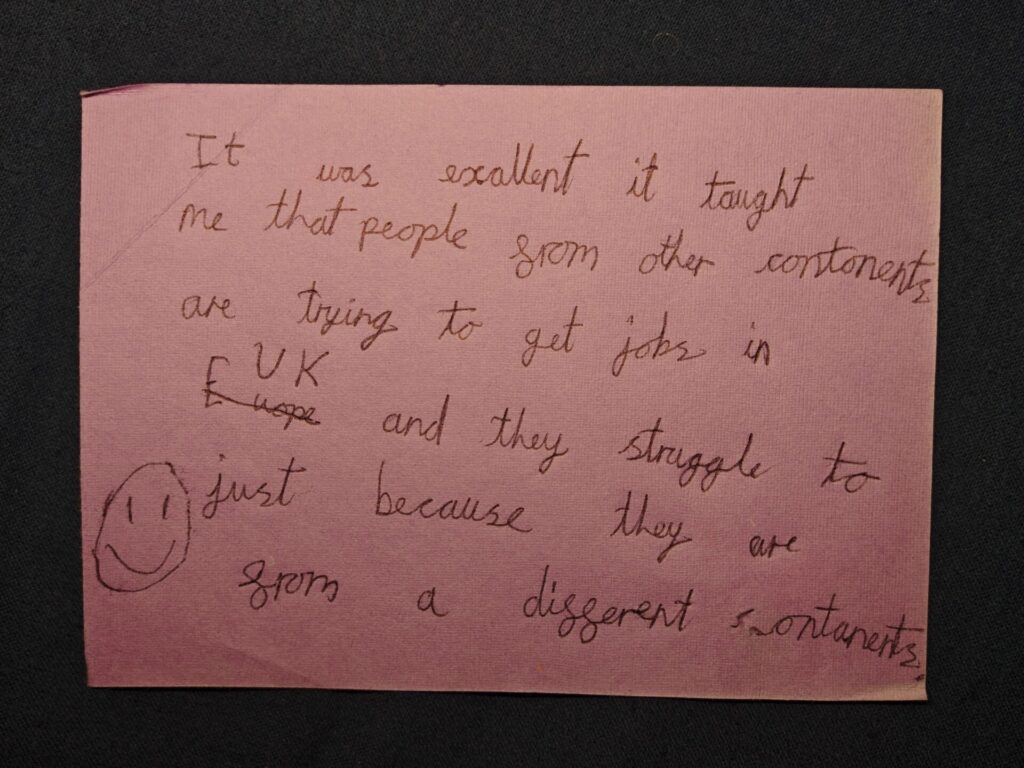 It was exallent it taught
me that people from other contonents
are trying to get jobs in
UK
Europe and they struggle to
just because they are
from a different contanents.